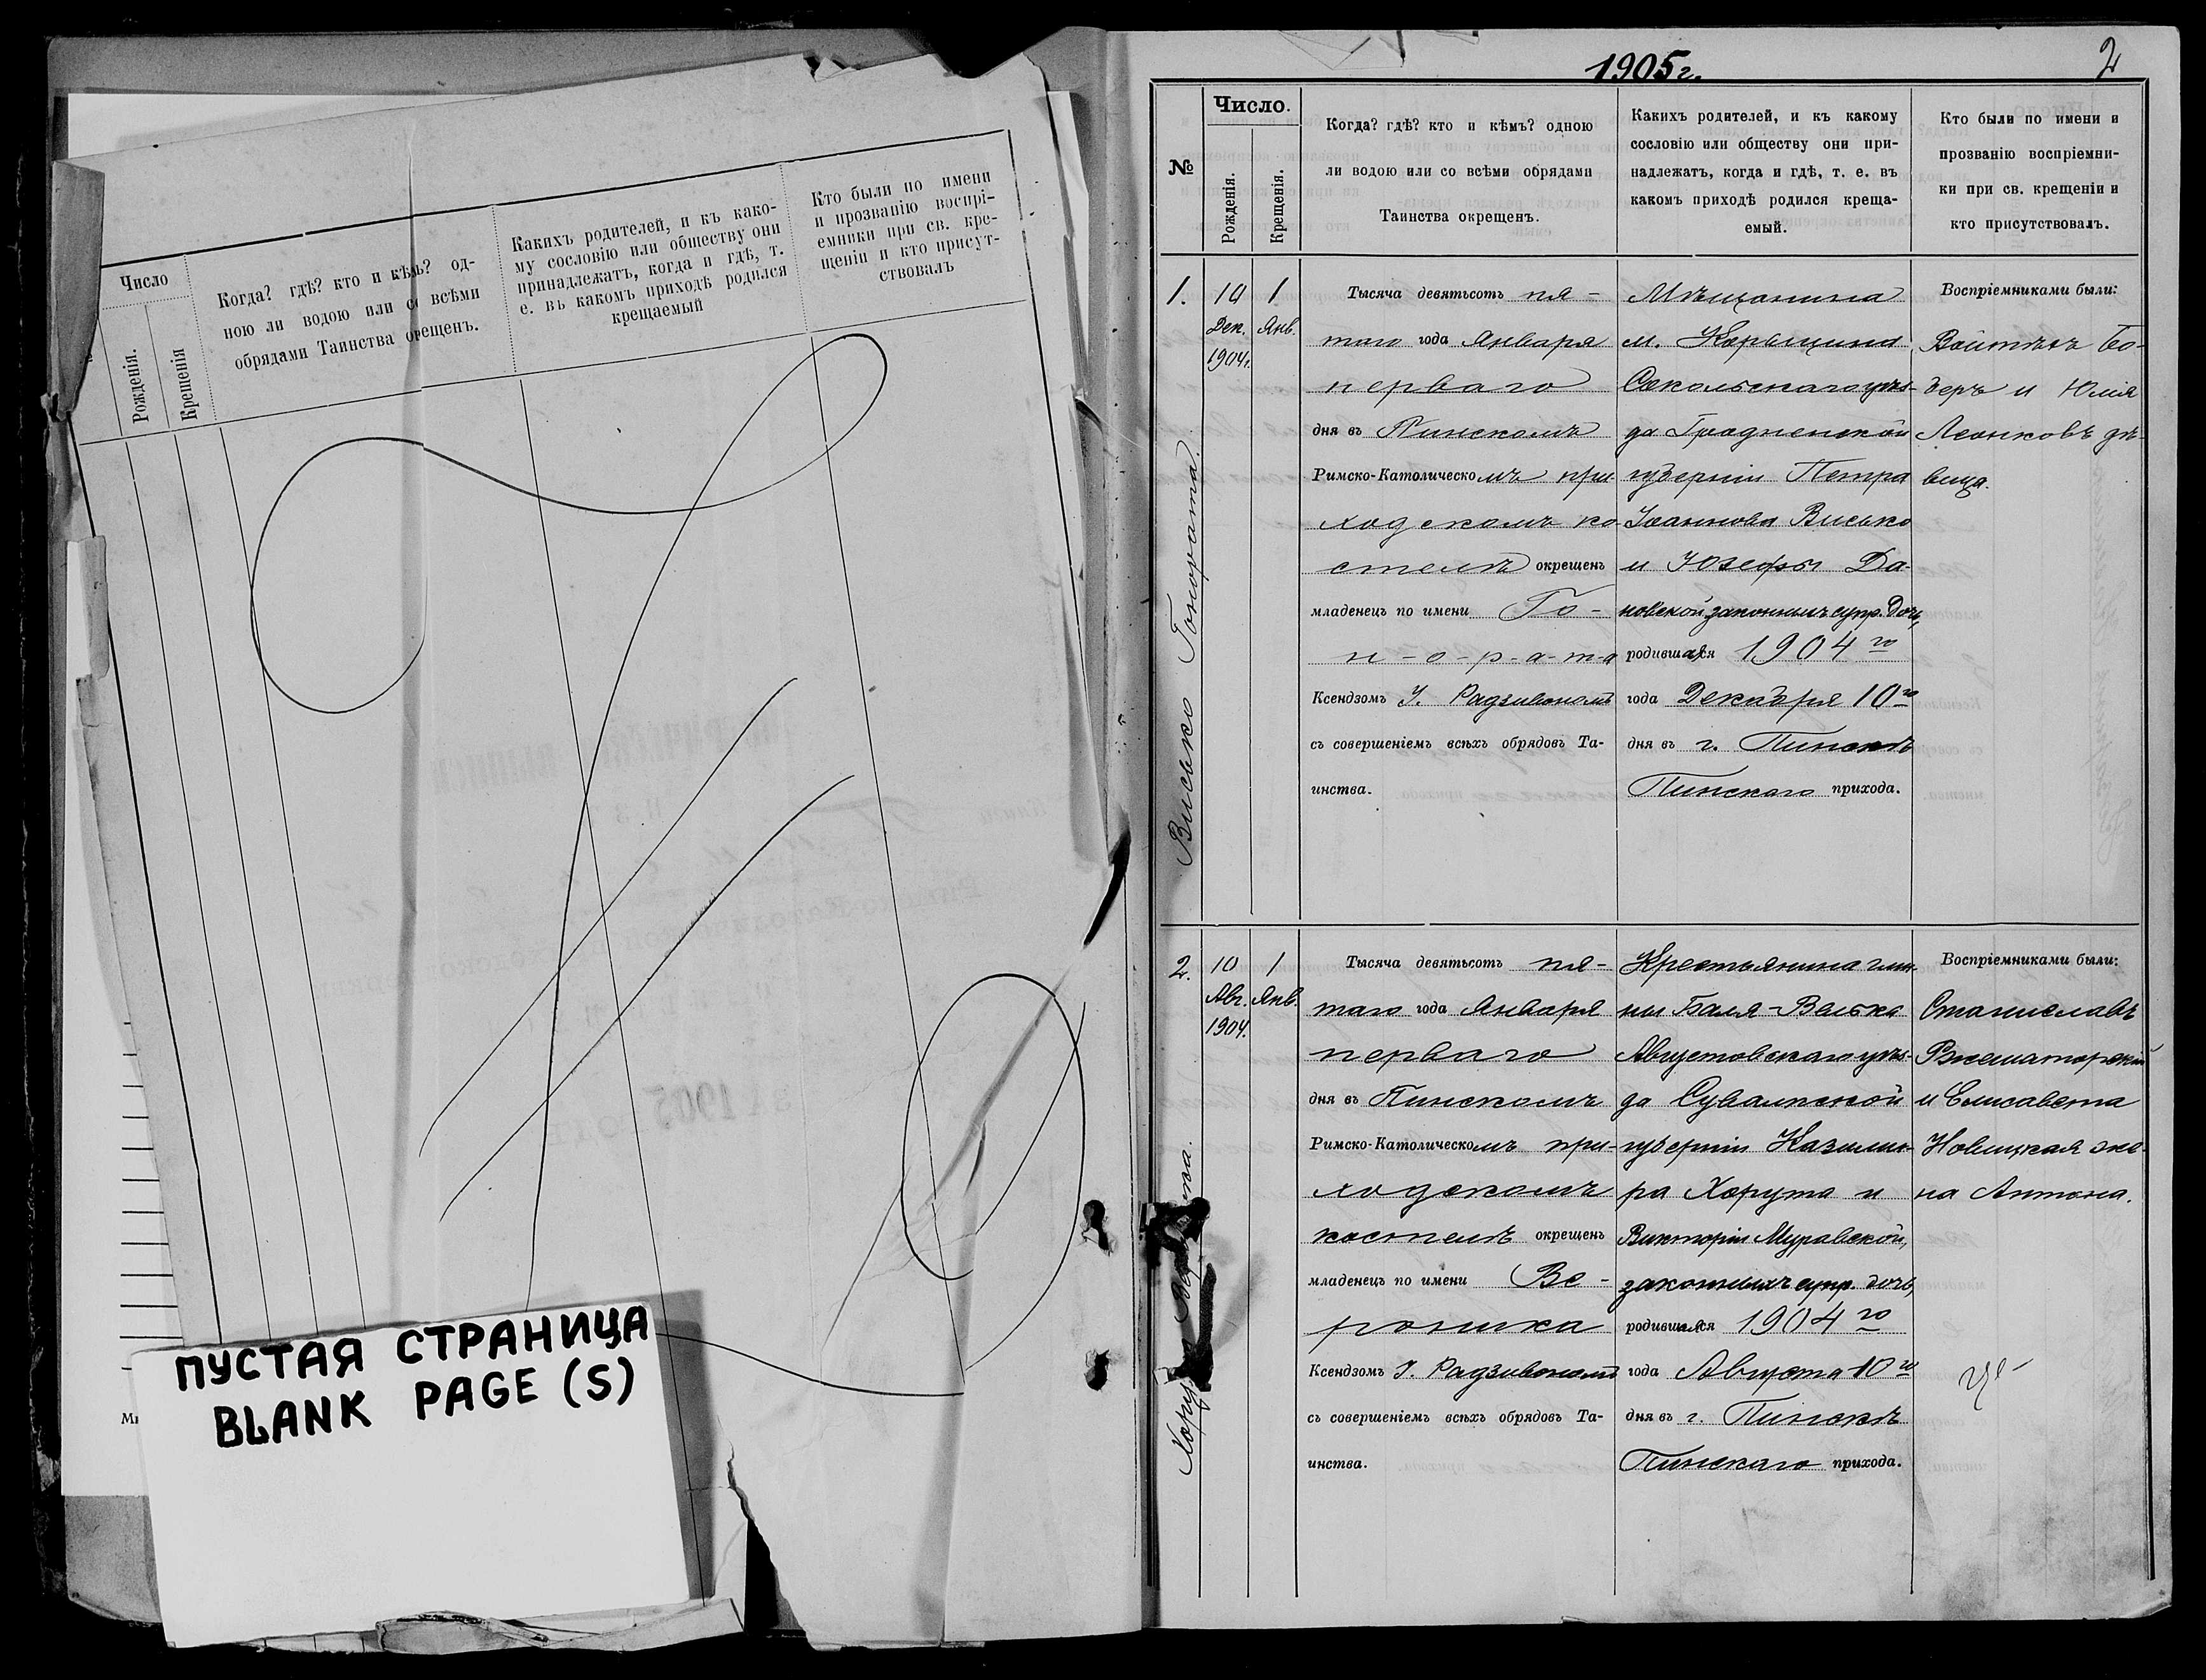 Число
Рожденія.
Крещенія
Когда? гдѣ? кто и кѣмъ? од-
ною ли водою или со всѣми
обрядами Таинства окрещенъ.
Какихъ родителей, и къ како-
му сословію или обществу они
принадлежатъ, когда и гдѣ, т.
е. въ какомъ приходѣ родился
крещаемый
Кто были по имени
и прозванію воспрі-
емники при св. кре-
щеніи и кто присут-
ствовалъ
ПУСТАЯ СТРАНИЦА
BLANK PAGE (S)
1905 г.
2
№
Число.
Рожденія.
Крещенія.
Когда? гдѣ? кто и кѣмъ? одною
ли водою или со всѣми обрядами
Таинства окрещенъ.
Какихъ родителей, и къ какому
сословію или обществу они при-
надлежатъ, когда и гдѣ, т. е. въ
какомъ приходѣ родился креща-
емый.
Кто были по имени и
прозванію воспріемни-
ки при св. крещеніи и
кто присутствовалъ.
1.
Висько Гонората.
10
Дек.
1904г.
1
Янв.
Тысяча девятьсотъ пя-
таго года Января
перваго
дня въ Пинскомъ
Римско-Католическомъ при-
ходскомъ ко-
стелѣ окрещенъ
младенецъ по имени Го-
н-о-р-а-т-а
Ксендзомъ І. Радзивономъ
съ совершеніемъ всѣхъ обрядовъ Та-
инства.
Мѣщанина
м. Корыцина
Сокольскаго уѣз-
да Гродненской
губерніи Петра
Іоаннова Висько
и Юзефы Да-
новской законныхъ супр. дочь,
родившаяся 1904 го
года Декабря 10 го
дня въ г. Пинскѣ
Пинскаго прихода.
Воспріемниками были:
Войтѣхъ Бо-
беръ и Юлія
Леонковъ дѣ-
вица.
2.
10
Авг.
1904.
1
Янв.
Тысяча девятьсотъ пя-
таго года Января
перваго
дня въ Пинскомъ
Римско-Католическомъ при-
ходскомъ
костелѣ окрещенъ
младенецъ по имени Ве-
роника
Ксендзомъ І. Радзивономъ
съ совершеніемъ всѣхъ обрядовъ Та-
инства.
Крестьянина гми-
ны Баля-Велька
Августовскаго уѣз-
да Сувалкской
губерніи Казими-
ра Хорута и
Викторіи Муравской,
законныхъ супр. дочь,
родившаяся 1904 го
года Августа 10 го
дня въ г. Пинскѣ
Пинскаго прихода.
Воспріемниками были:
Станиславъ
и Елисавета
Новицкая же-
на Антона.